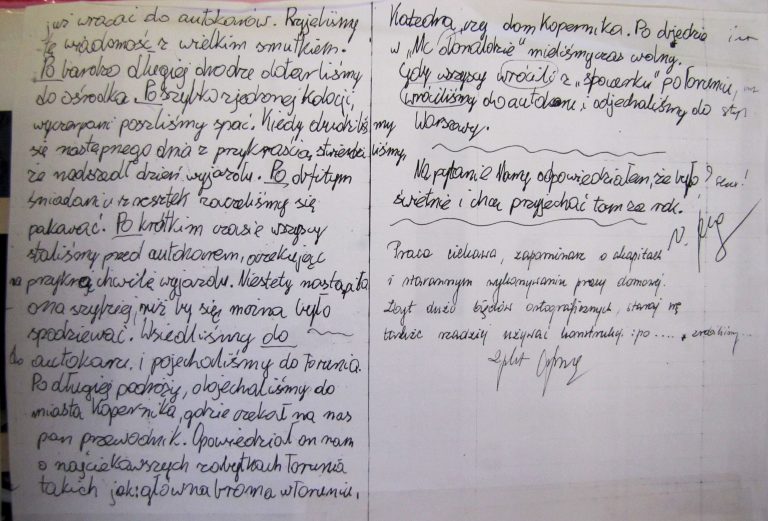 już wracać do autokarów. Przyjeliśmy
tę wiadomość z wielkim smutkiem.
Po bardzo długiej drodze dotarliśmy
do ośrodka. Po szybko zjedzonej kolacji,
wyczerpani poszliśmy spać. Kiedy obudziliśmy
się następnego dnia z przykrością, stwierdziliśmy,
że nadszedł dzień wyjazdu. Po obfitym
śniadaniu z resztek zaczeliśmy się
pakować. Po krótkim czasie wszyscy
staliśmy przed autokarem, oczekując
na przykrą chwilę wyjazdu. Niestety nastąpiła
ona szybciej, niż by się można było
spodziewać. Wsiedliśmy do
autokaru i pojechaliśmy do Torunia.
Po długiej podróży, dojechaliśmy do
miasta Kopernika, gdzie czekał na nas
pan przewodnik. Opowiedział on nam
o najciekawszych zabytkach Torunia
takich jak: główna brama w Toruniu,
Katedra, czy dom Kopernika. Po objedzie
w „Mc donaldzie" mieliśmy czas wolny.
Gdy wszyscy wrócili z „spacerku" po Toruniu,
wróciliśmy do autokaru i odjechaliśmy do
Warszawy.
Na pytanie Mamy odpowiedziałem, że było ?
świetnie i chcę przyjechać tam za rok.
Praca ciekawa, zapominasz o akapitach
i starannym wykonywaniu pracy domowej.
Zbyt dużo błędów ortograficznych, staraj się
też rzadziej używać konstrukcji: po ...., zrobiliśmy...